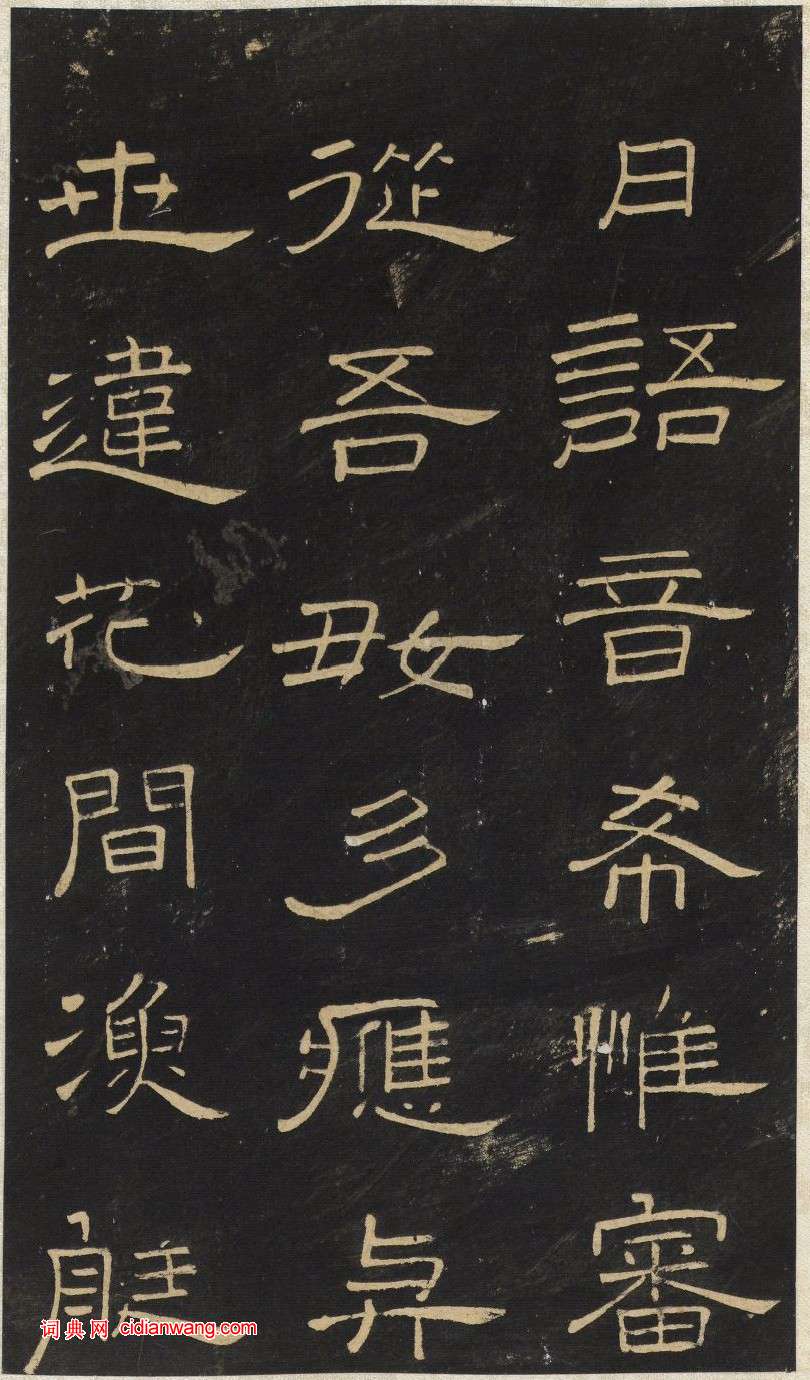 日語音希惟審
從吾好多應與
世違花間漁艇
词典网 cidianwang.com